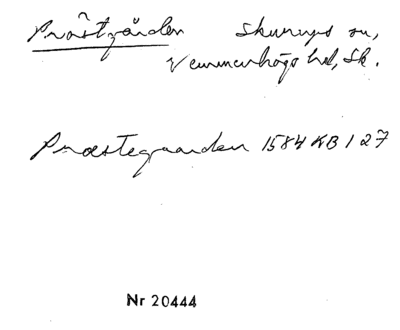 Prästgården Skurups sn,
Vemmenhögs hd, Sk.
Præstegaarden 1584 KB 127
Nr 20444